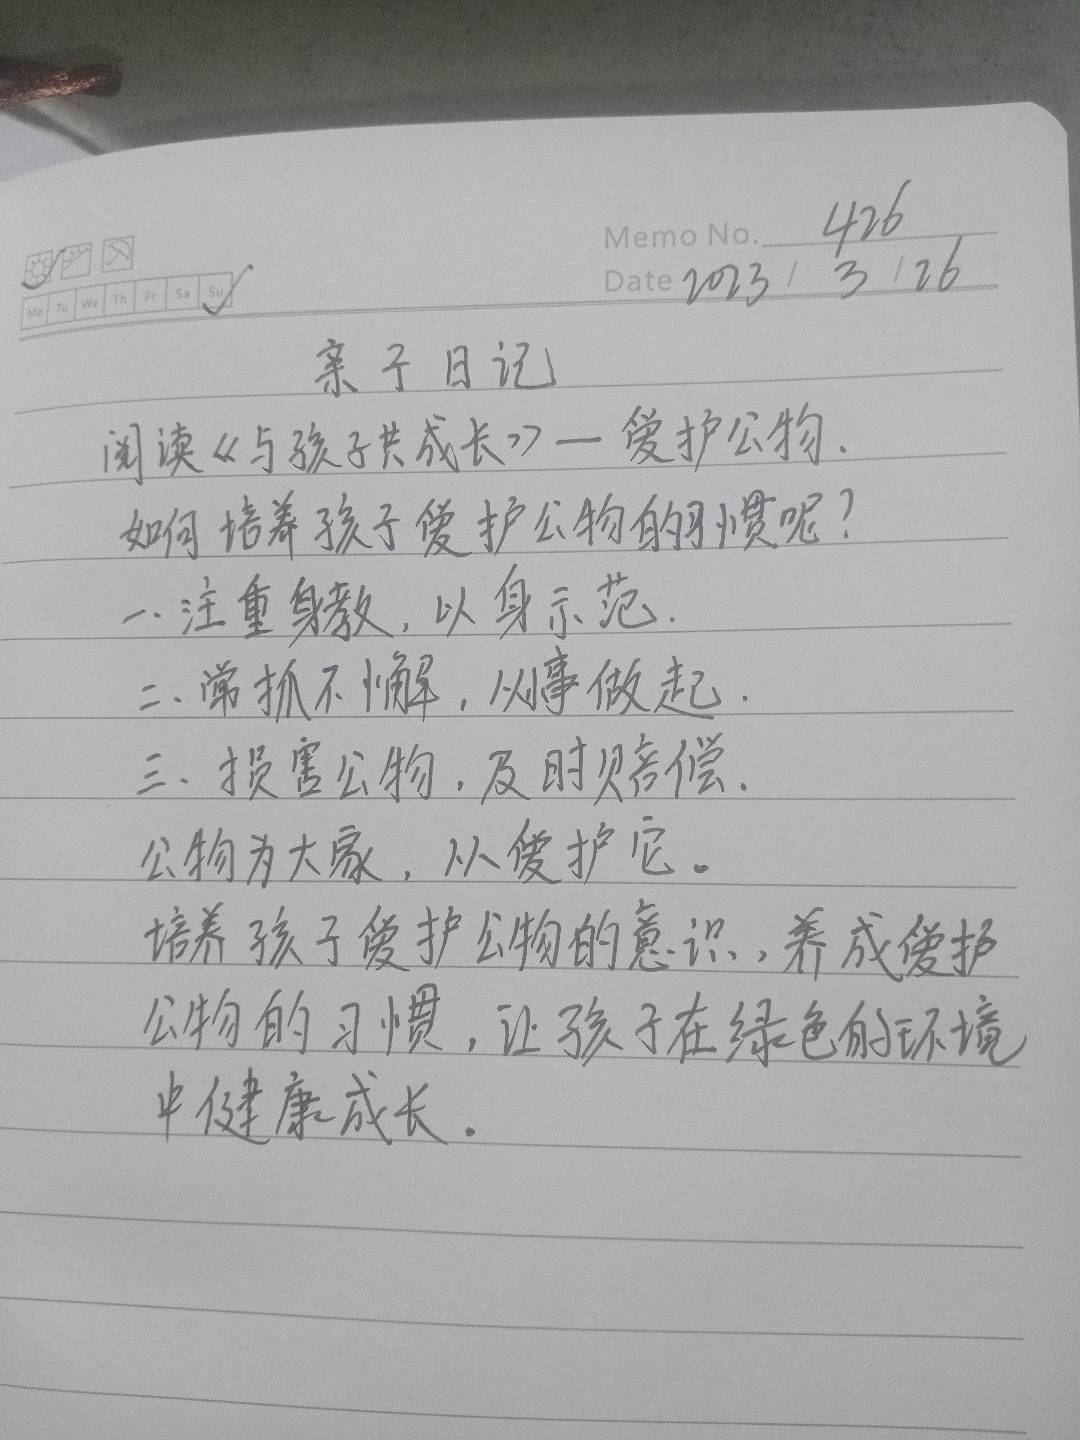 Memo No. 426
Date 2023 / 3 / 26
Mo Tu We Th Fr Sa Su
亲子日记
阅读《与孩子共成长》一爱护公物.
如何培养孩子爱护公物的习惯呢?
一.注重身教,以身示范.
二.常抓不懈,从事做起.
三.损害公物,及时赔偿.
公物为大家,从爱护它。
培养孩子爱护公物的意识,养成爱护
公物的习惯,让孩子在绿色的环境
中健康成长.